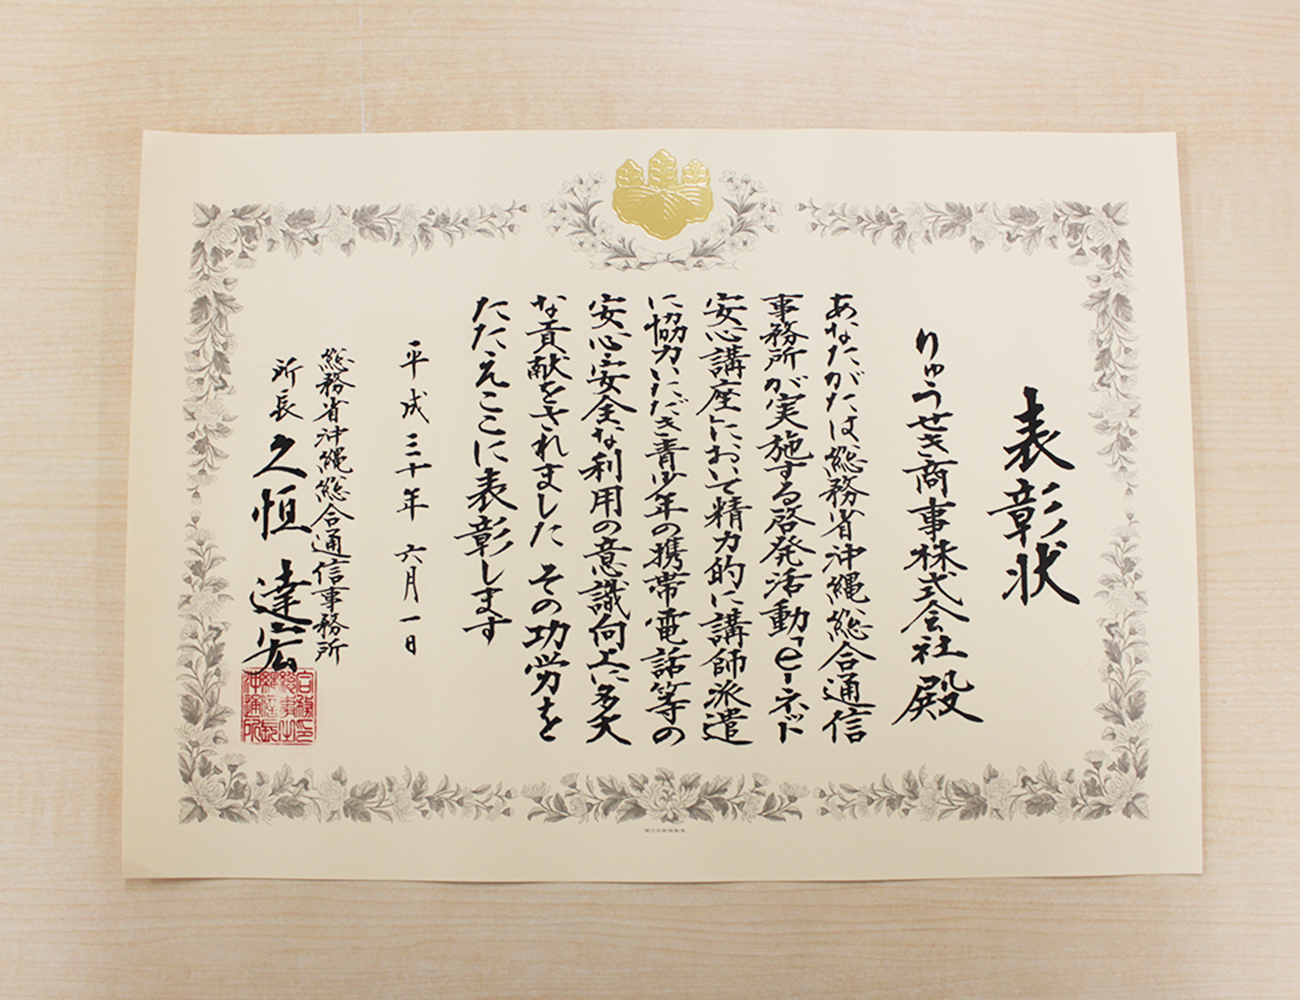 表彰状
りゅうせき商事株式会社 殿
あなたがたは総務省沖縄総合通信
事務所が実施する啓発活動「e-ネット
安心講座」において精力的に講師派遣
に協力いただき青少年の携帯電話等の
安心安全な利用の意識向上に多大
な貢献をされました その功労を
たたえここに表彰します
平成三十年 六月一日
総務省沖縄総合通信事務所
所長 久恒 達宏